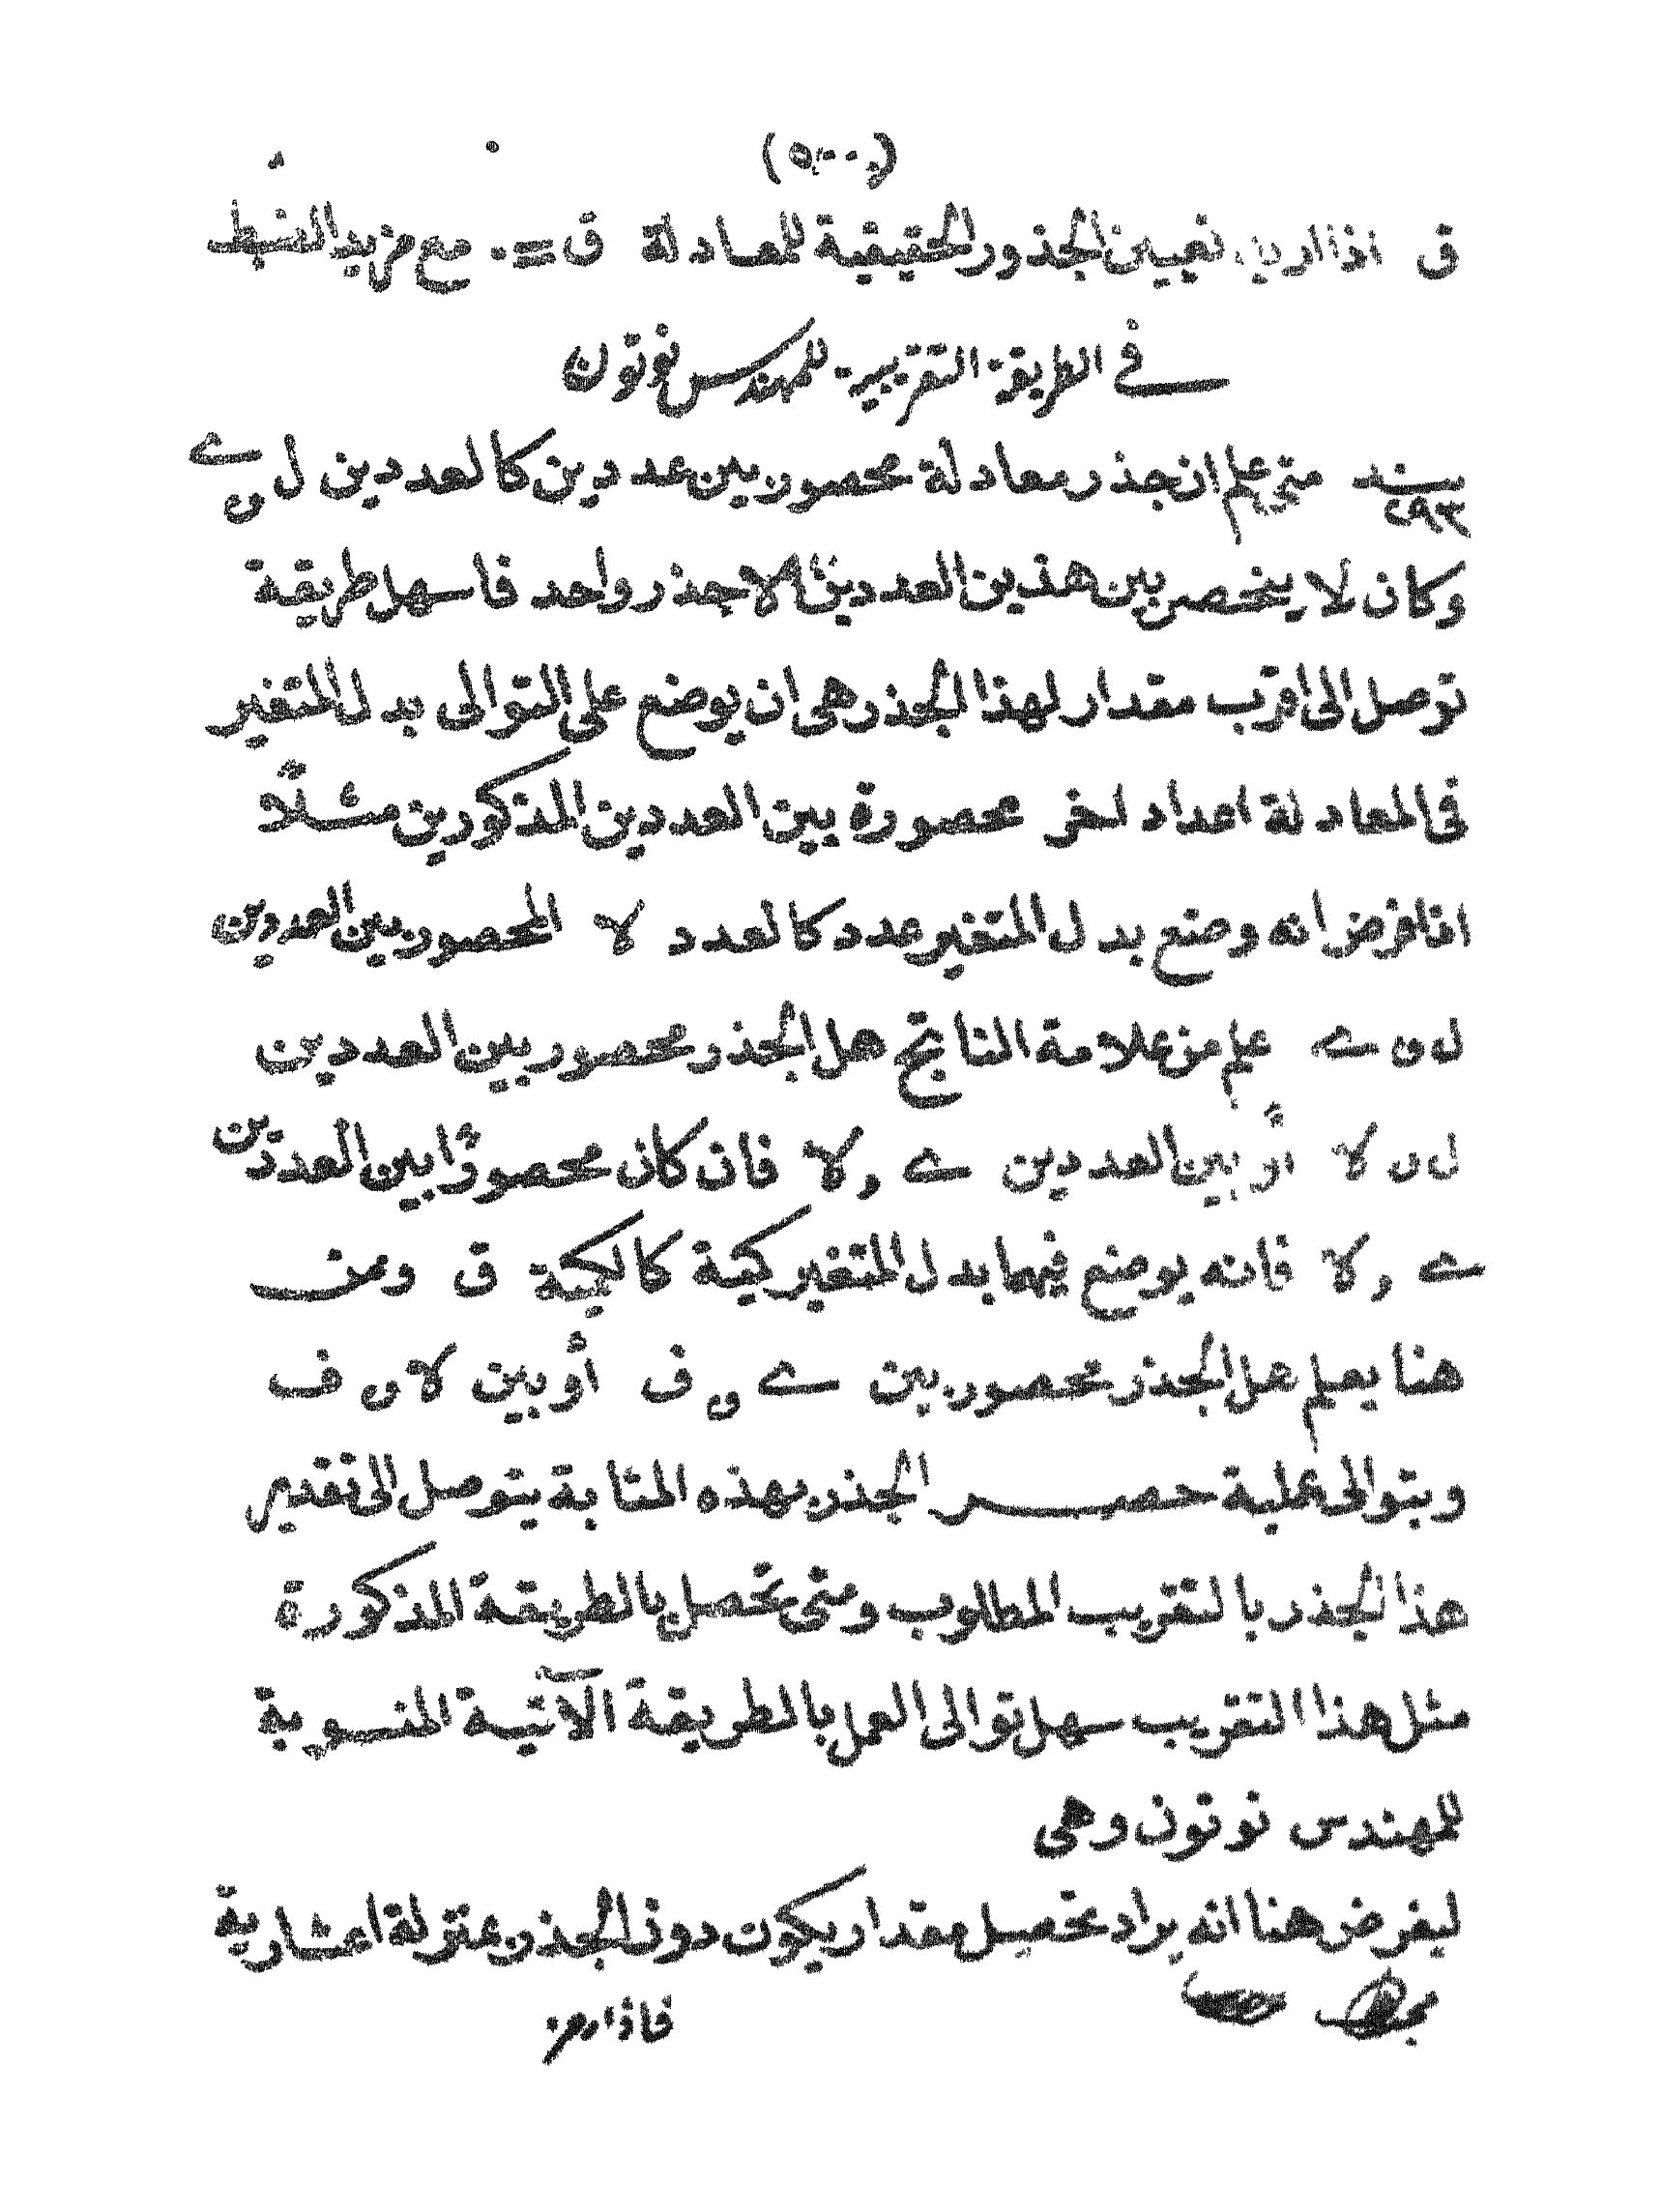 (٥٠٠)
ق اذا اريد تعيين الجذور الحقيقية للمعادلة ق = ٠ مع مزيد الضبط
في الطريقة التقريبية للمهندس نوتون
بند ٢٩٣ متى علم ان جذر معادلة محصور بين عددين كالعددين ل و ے
وكان لا ينحصر بين هذين العددين الا جذر واحد فاسهل طريقة
توصل الى اقرب مقدار لهذا الجذر هى ان يوضع على التوالى بدل المتغير
فى المعادلة اعداد اخر محصورة بين العددين المذكورين مثلاً
اذا فرض انه وضع بدل المتغير عدد كالعدد لا المحصور بين العددين
ل و ے علم من علامة الناتج هل الجذر محصور بين العددين
ل و لا أو بين العددين ے و لا فان كان محصورًا بين العددين
ے و لا فانه يوضع فيهما بدل المتغير كمية كالكمية ق ومن
هنا يعلم هل الجذر محصور بين ے و ف أو بين لا و ف
وبتوالى عملية حصر الجذر بهذه المثابة يتوصل الى تقدير
هذا الجذر بالتقريب المطلوب ومتى تحصل بالطريقة المذكورة
مثل هذا التقريب سهل توالى العمل بالطريقة الآتية المنسوبة
للمهندس نوتون وهى
ليفرض هنا انه يراد تحصيل مقدار يكون دون الجذر بمنزلة اعشارية
فاذا رمز